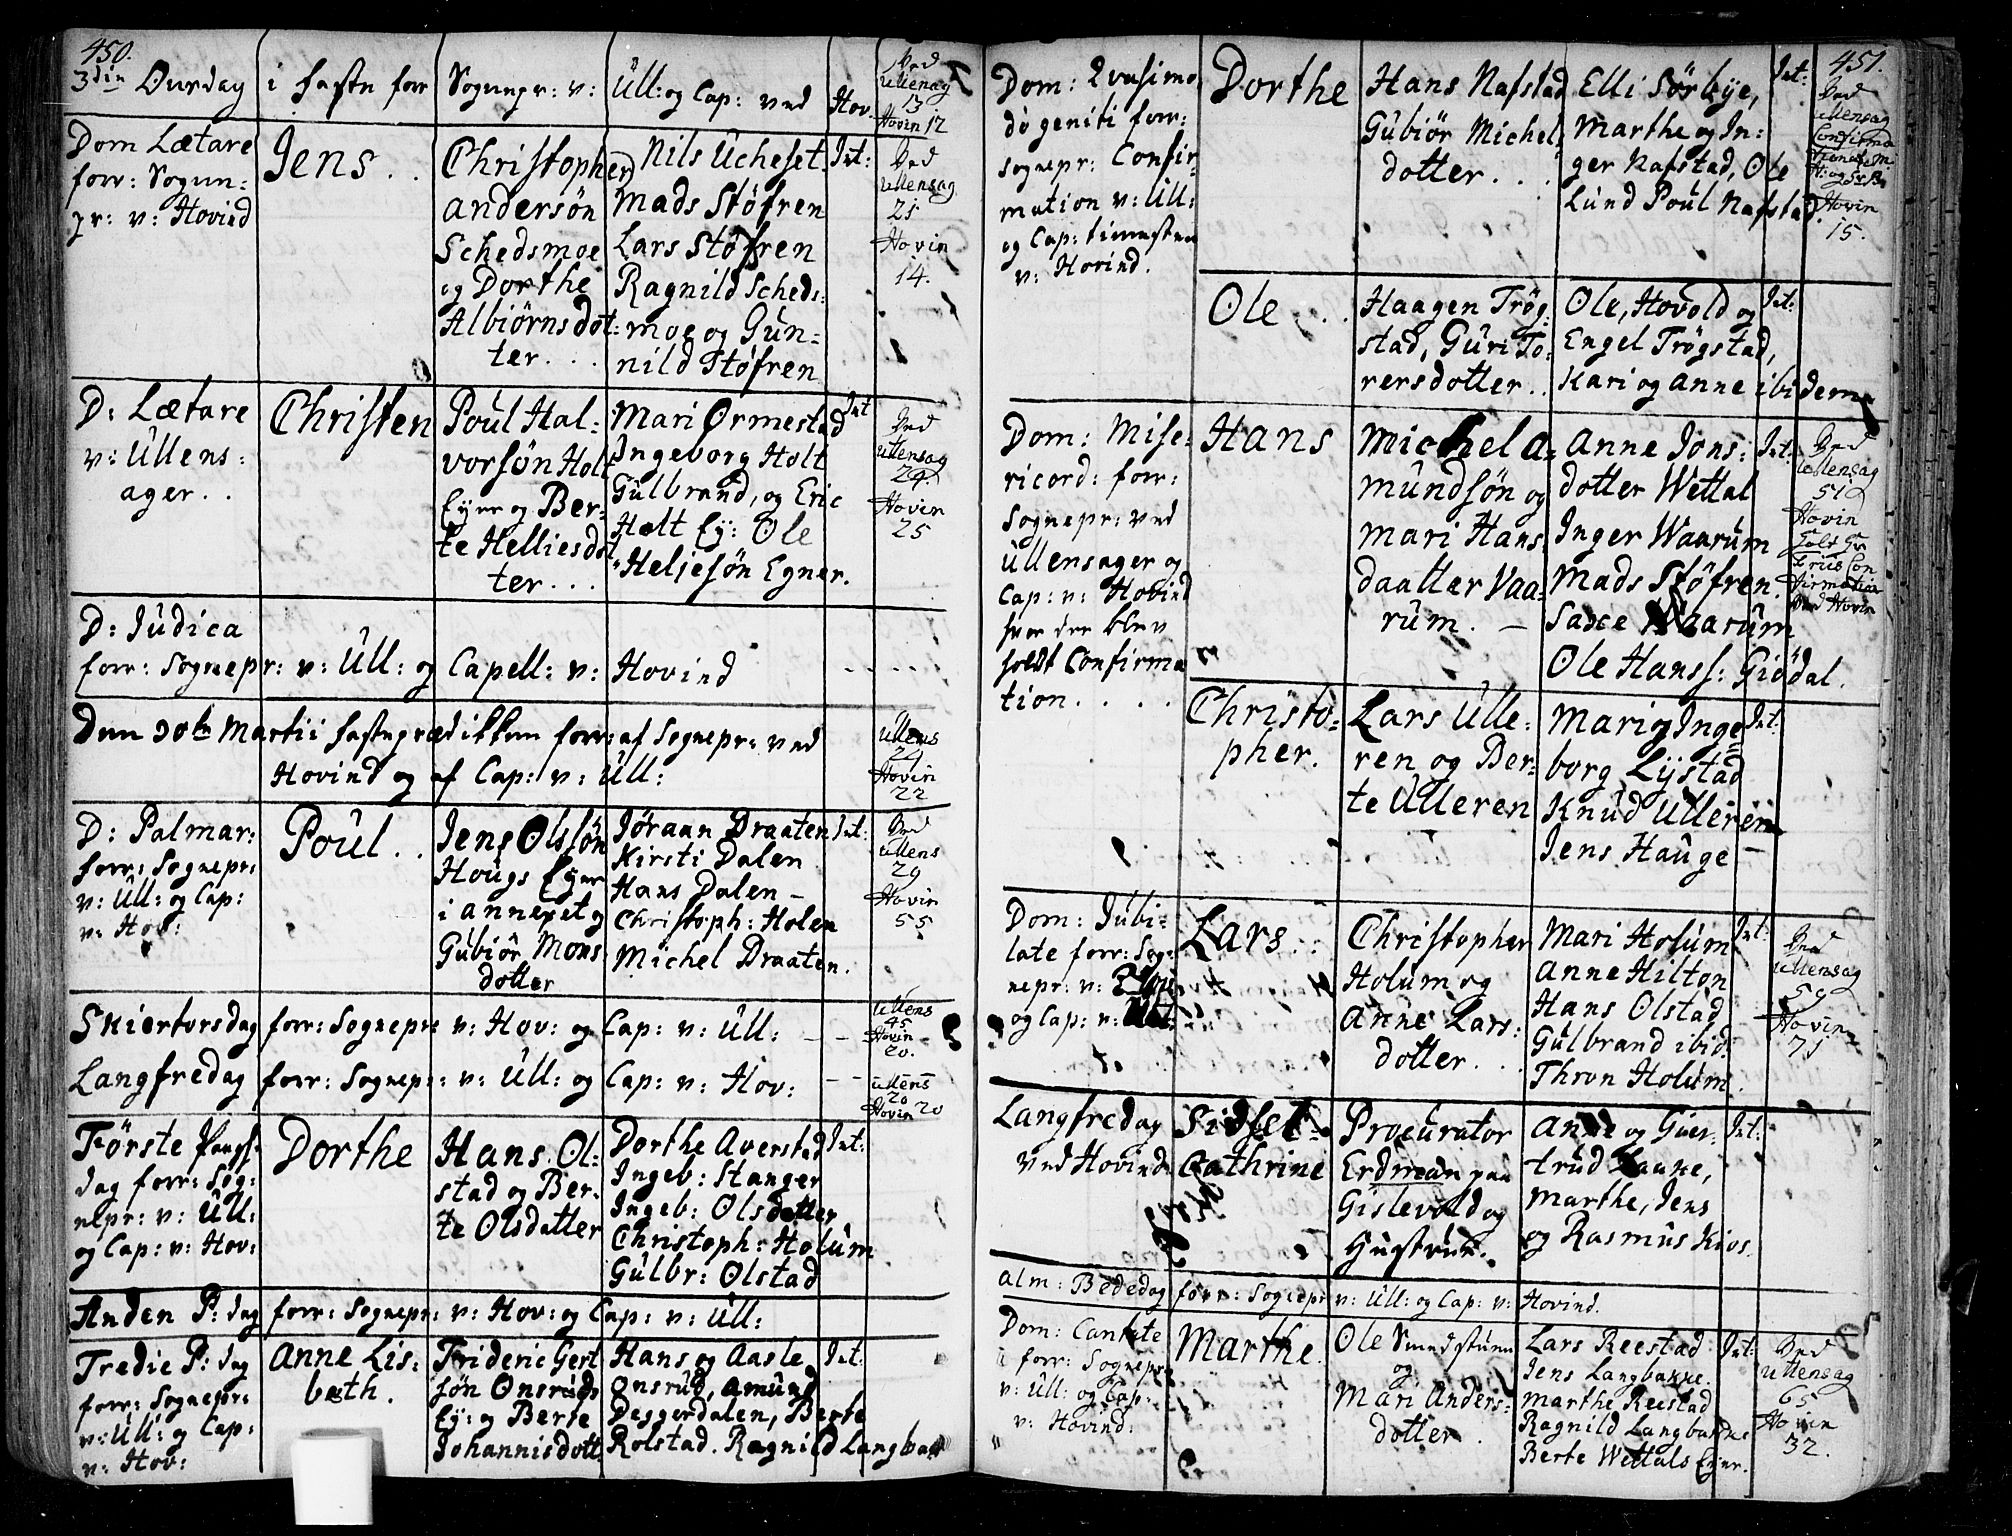 450.
3die Onsdag i Faste forr: Sognepr: v: Ull: og Cap: ved Hov.
Ved Ullensag 13
Hovin 12
Dom Lætare
forr: Sogne-
pr: v: Hovind
Jens . .
Christopher
Andersøn
Schedsmoe
og Dorthe
Albiørnsdot:
ter . . .
Nils Ucheset
Mads Støfren
Lars Støfren
Ragnild Scheds:
moe og Gun:
nild Støfren
Int:
Ved
Ullensag
21
Hovin
14.
D: Lætare
v: Ullens:
ager . .
Christen
Poul Hal:
vorsøn Holt
Eyer og Ber:
te Helliesdot
ter . . .
Mari Ormestad
Ingeborg Holt
Gulbrand, og Eric
Holt Ey: Ole
Heljesøn Egner.
Int
Ved
Ullensag
24
Hovin
25
D: Judica
forr: Sognepr: v: Ull: og Capell: v: Hovind
Den 30te Martii Fasteprædikken forr: af Sognepr: ved
Hovind og af Cap: v: Ull:
Ullens
24
Hovin
22
D: Palmar:
forr: Sognepr:
v: Ull: og Cap:
v: Hov:
Poul . .
Jens Olssøn
Hougs Eyer
i Annexet og
Gubiør Mons
dotter
Jøraan Draaten
Kirsti Dalen
Hans Dalen -
Christoph: Holen
Michel Draaten.
Int:
Ved
Ullens
29
Hovin
55
Skiertorsdag forr: Sognepr: v: Hov: og Cap: v: Ull: - -
Ullens
45
Hovin
20.
Langfredag forr: Sognepr: v: Ull: og Cap: v: Hov: - -
Ullens
20
Hovin 20
Første Paasch:
dag forr: Sog:
nepr: v: Ull:
og Cap: v: Hov:
Dorthe
Hans Ol:
stad og Ber:
te Olsdatter
Dorthe Averstad
Ingeb: Stanger
Ingeb: Olsdotter
Christoph: Holum
Gulbr: Olstad
Int:
Anden P: dag forr: Sognepr: v: Hov: og Cap: v: Ull:
Tredie P: dag
forr: Sognepr:
v: Ull: og Cap:
v: Hov:
Anne Lis:
bæth.
Frideric Gert
søn Onsruds
Ey: og Berte
Johannisdott
Hans og Aasle
Onsrud, Amund
Desgerdalen, Berte
Rolstad. Ragnild Langbak
Int:
451.
Dom: Qvasimo
do geniti forr:
Sognepr: Confir-
mation v: Ull:
og Cap: tienesten
v: Hovind.
Dorthe
Hans Nafstad
Gubiør Michels
dotter . . .
Elli Sørbye,
Marthe og In:
ger Nafstad, Ole
Lund Poul Nafstad
Int:
Ved
Ullensag
Confirma
Hovin
15.
Ole . . .
Haagen Trøg:
stad, Guri To:
rersdotter . .
Ole, Hovold og
Engel Trøgstad,
Kari og Anne ibidem
Int:
Dom: Mise:
ricord: forr:
Sognepr: ved
Ullensager og
Cap: v: Hovind
hvor der blev
holdt Confirma
tion . . . .
Hans
Michel A:
mundsøn og
Mari Hans
daatter Vaa:
rum. -
Anne Jons:
dotter Wettal
Inger Waarum
Mads Støfren.
Saxe Waarum
Ole Hanss: Giødal.
Int:
Ved
Ullensag
51
Hovin
Ved Hovin
Christo:
pher.
Lars Ulle:
ren og Ber:
te Ulleren
Mari og Inge
borg Lystad
Knud Ulleren
Jens Hauge -
Int:
Dom: Jubi:
late forr: Sog:
nepr: v:
og Cap: v:
Lars . .
Christopher
Holum og
Anne Lars:
dotter . .
Mari Holum
Anne Hilton
Hans Olstad
Gulbrand ibid:
Thron Holum.
Int:
Ved
Ullensag
59
Hovin
71
Langfredag
ved Hovind
Sidsel
Cathrine
Procurator
Erdman paa
Gislevold og
Hustrue.
Anne og Gier:
trud Lauke,
Marthe, Jens
og Rasmus Kios.
Int:
Alm: Bededag forr: Sognepr: v: Ull: og Cap: v: Hovind.
Dom: Cantate
forr: Sognepr:
v: Ull: og Cap:
v: Hovind:
Marthe.
Ole Smedstuen
og
Mari Anders:
dotter .
Lars Reestad
Jens Langbakke.
Marthe Reestad
Ragnild Langbakke
Berte Wettals Eyer.
Int:
Ved
Ullensag
65
Hovin
32.